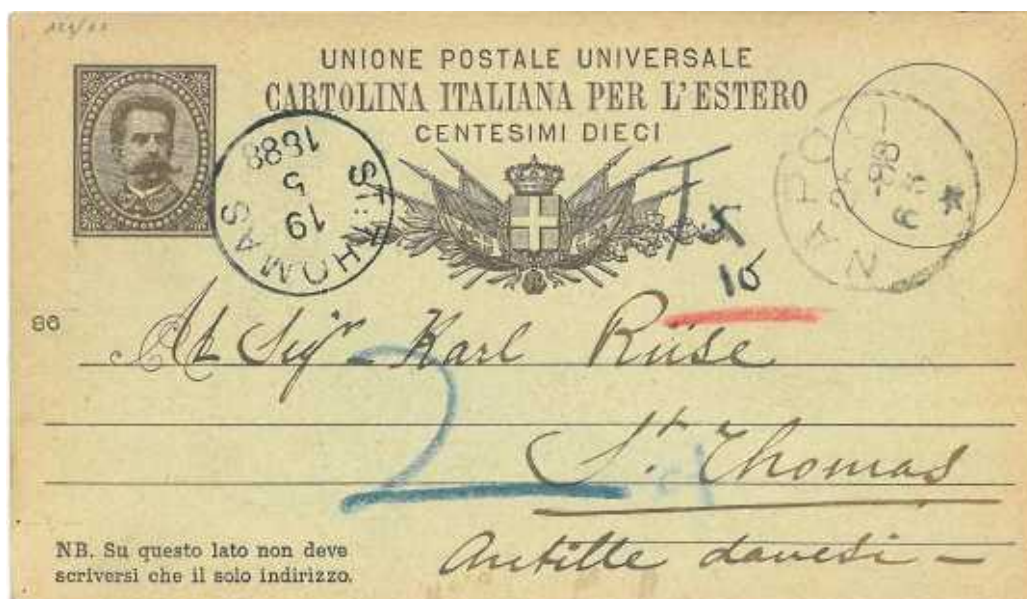 UNIONE POSTALE UNIVERSALE
CARTOLINA ITALIANA PER L'ESTERO
CENTESIMI DIECI
ST. THOMAS
19
5
1888
NAPOLI
T
10
86
Al Sigr Karl Riise
2
St. Thomas
Antille danesi -
NB. Su questo lato non deve
scriversi che il solo indirizzo.